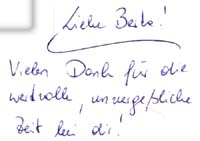 Liebe Berta!
Vielen Dank für die
wertvolle, unvergeßliche
Zeit bei dir!